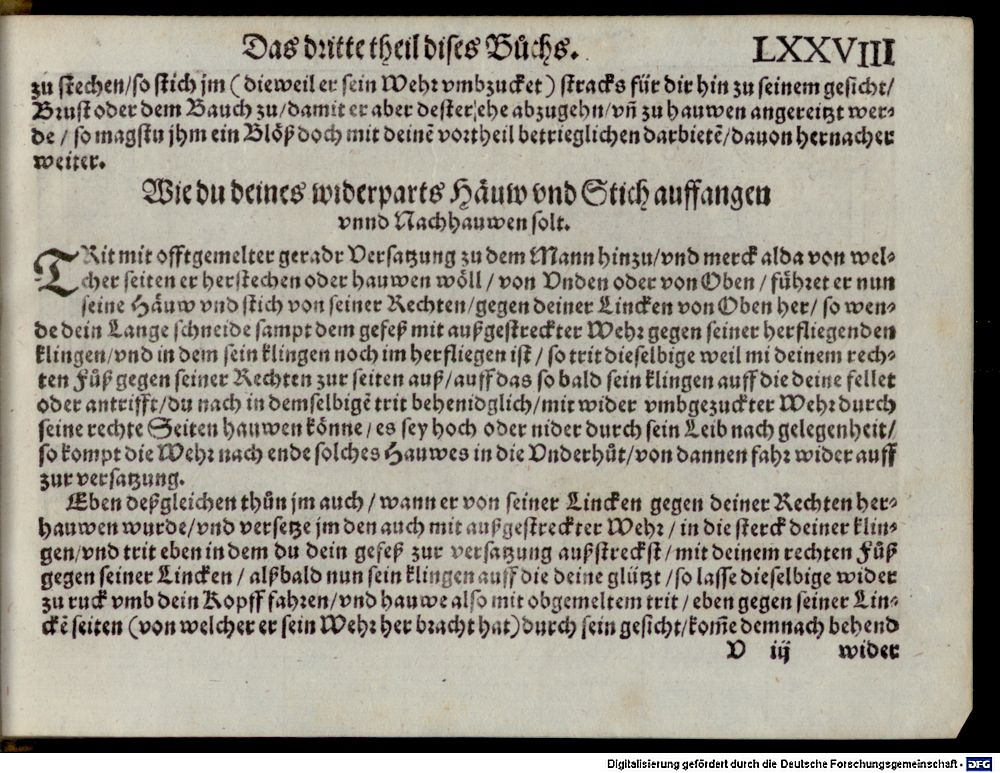 Das dritte theil dises Bůchs. LXXVIII
zu stechen/so stich jm (dieweil er sein Wehr vmbzucket) stracks für dir hin zu seinem gesicht/
Brust oder dem Bauch zu/damit er aber dester ehe abzugehn/vñ zu hauwen angereitzt wer-
de/so magstu jhm ein Blöß doch mit deinē vortheil betrieglichen darbietē/dauon hernacher
weiter.
Wie du deines widerparts Häuw vnd Stich auffangen
vnnd Nachhauwen solt.
TRit mit offtgemelter geradr Versatzung zu dem Mann hinzu/vnd merck alda von wel-
cher seiten er herstechen oder hauwen wöll/von Vnden oder von Oben/führet er nun
seine Häuw vnd stich von seiner Rechten/gegen deiner Lincken von Oben her/so wen-
de dein Lange schneide sampt dem gefeß mit außgestreckter Wehr gegen seiner herfliegenden
klingen/vnd in dem sein klingen noch im herfliegen ist/so trit dieselbige weil mi deinem rech-
ten Fůß gegen seiner Rechten zur seiten auß/auff das so bald sein klingen auff die deine fellet
oder antrifft/du nach in demselbigē trit behenidglich/mit wider vmbgezuckter Wehr durch
seine rechte Seiten hauwen könne/es sey hoch oder nider durch sein Leib nach gelegenheit/
so kompt die Wehr nach ende solches Hauwes in die Vnderhůt/von dannen fahr wider auff
zur versatzung.
Eben deßgleichen thůn jm auch/wann er von seiner Lincken gegen deiner Rechten her-
hauwen wurde/vnd versetze jm den auch mit außgestreckter Wehr/in die sterck deiner klin-
gen/vnd trit eben in dem du dein gefeß zur versatzung außstreckst/mit deinem rechten Fůß
gegen seiner Lincken/alßbald nun sein klingen auff die deine glützt/so lasse dieselbige wider
zu ruck vmb dein Kopff fahren/vnd hauwe also mit obgemeltem trit/eben gegen seiner Lin-
ckē seiten (von welcher er sein Wehr her bracht hat) durch sein gesicht/kom̃e demnach behend
V iij wider
Digitalisierung gefördert durch die Deutsche Forschungsgemeinschaft - DFG